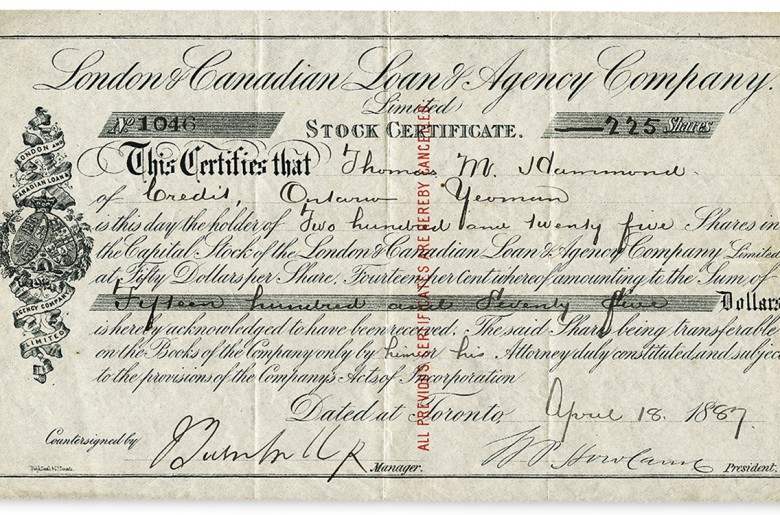 London & Canadian Loan & Agency Company.
Limited
No 1046
STOCK CERTIFICATE.
225 Shares
This Certifies that Thomas M. Hammond
of Credit, Ontario Yeoman
is this day the holder of Two hundred and twenty five Shares in
the Capital Stock of the London & Canadian Loan & Agency Company Limited
at Fifty Dollars per Share. Fourteen per Cent whereof amounting to the Sum of
Fifteen hundred and Seventy five Dollars
is hereby acknowledged to have been received. The said Shares being transferable
on the Books of the Company only by him or his Attorney duly constituted, and subject
to the provisions of the Company's Acts of Incorporation
Dated at Toronto, April 18. 1887.
Countersigned by
Manager.
W P Howland President.
ALL PREVIOUS CERTIFICATES ARE HEREBY CANCELLED
LONDON AND
CANADIAN LOAN &
AGENCY COMPANY
LIMITED